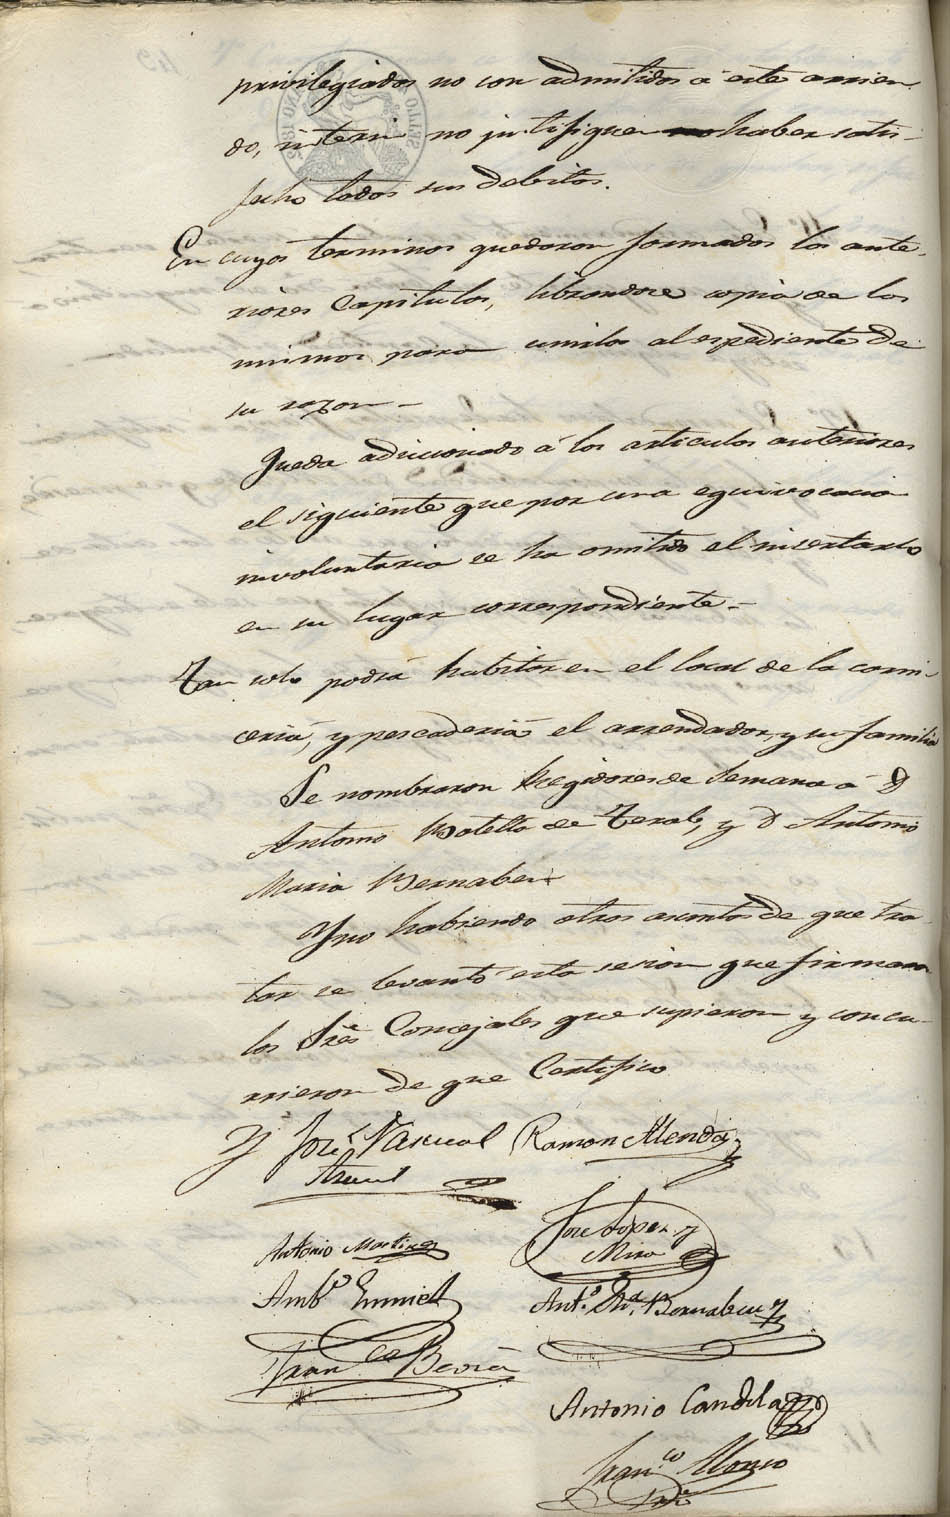 privilegiados no son admitidos á este arrien-
do, interin no justifiquen haber satis-
fecho todos sus debitos.
En cuyos terminos quedaron formados los ante-
riores Capitulos, librandose copia de los
mismos para unirlos al espediente de
su razon -
Queda adicionado á los articulos anteriores
el siguiente que por una equivocacion
involuntaria se ha omitido el insertarlo
en su lugar correspondiente -
Tan solo podrá habitar en el local de la carni-
ceria, y pescaderia el arrendador y su familia
Se nombraron Regidores de Semana á D
Antonio Botella de Terol, y D Antonio
Maria Bernabeu
Y no habiendo otros asuntos de que tra-
tar se levantó esta sesion que firmaron
los Sres Concejales que supieron y concu-
rrieron de que Certifico
José Pascual Ramon Alenda
Antonio Martinez José Lopez y
Miro
Ambº Ant.º Mª. Bernabeu
Franco Beviá
Antonio Candela
Franco Alonso